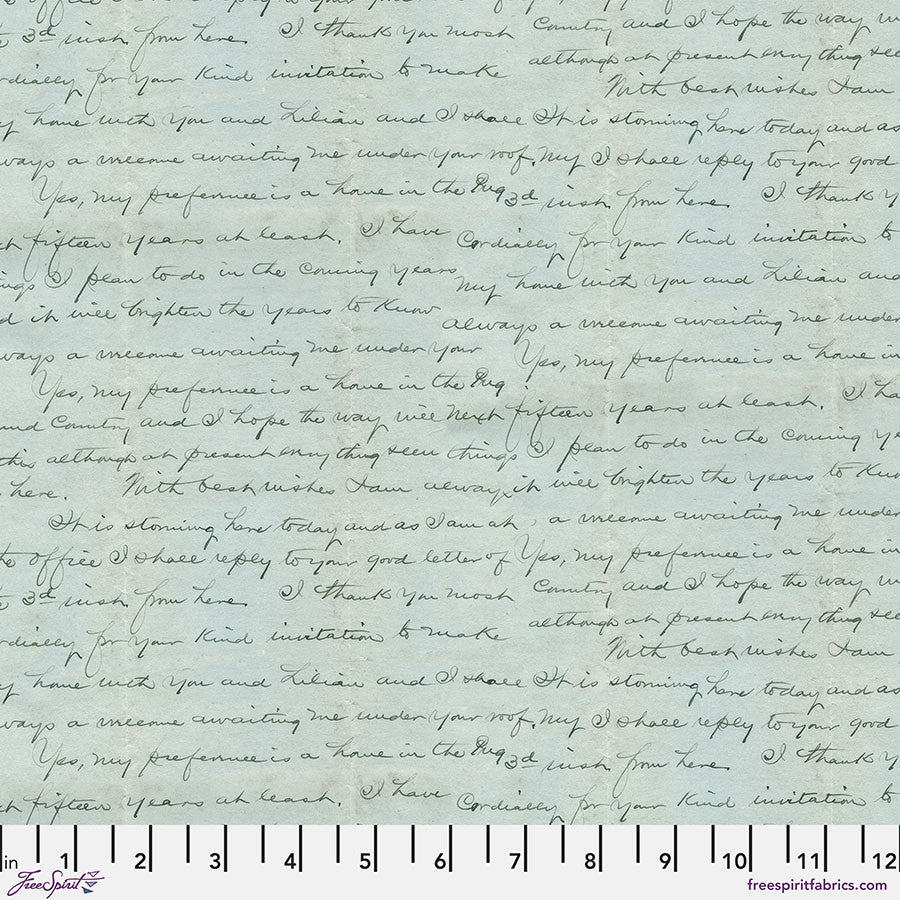 3d inst. from here. I thank you most Country and I hope the way
cordially for your kind invitation to make although at present everything
With best wishes I am
my home with you and Lilian and I shall It is storming here today and as
always a welcome awaiting me under your roof. My I shall reply to your good
Yes, my preference is a home in the 3d inst. from here. I thank
fifteen years at least. I have Cordially for your kind invitation to
things I plan to do in the coming years my home with you and Lilian and
it will brighten the years to know always a welcome awaiting me under
always a welcome awaiting me under your Yes, my preference is a home in
Yes, my preference is a home in the
and Country and I hope the way will next fifteen years at least. I
this although at present everything seem things I plan to do in the coming
here. With best wishes I am always it will brighten the years to know
It is storming here today and as I am at a welcome awaiting me under
the office I shall reply to your good letter of Yes, my preference is a home in
3d inst. from here. I thank you most Country and I hope the way
cordially for your kind invitation to make although at present everything
With best wishes I am
my home with you and Lilian and I shall It is storming here today and as
always a welcome awaiting me under your roof. My I shall reply to your good
Yes, my preference is a home in the 3d inst. from here. I thank
fifteen years at least. I have Cordially for your kind invitation to
in 1 2 3 4 5 6 7 8 9 10 11 12
FreeSpirit freespiritfabrics.com